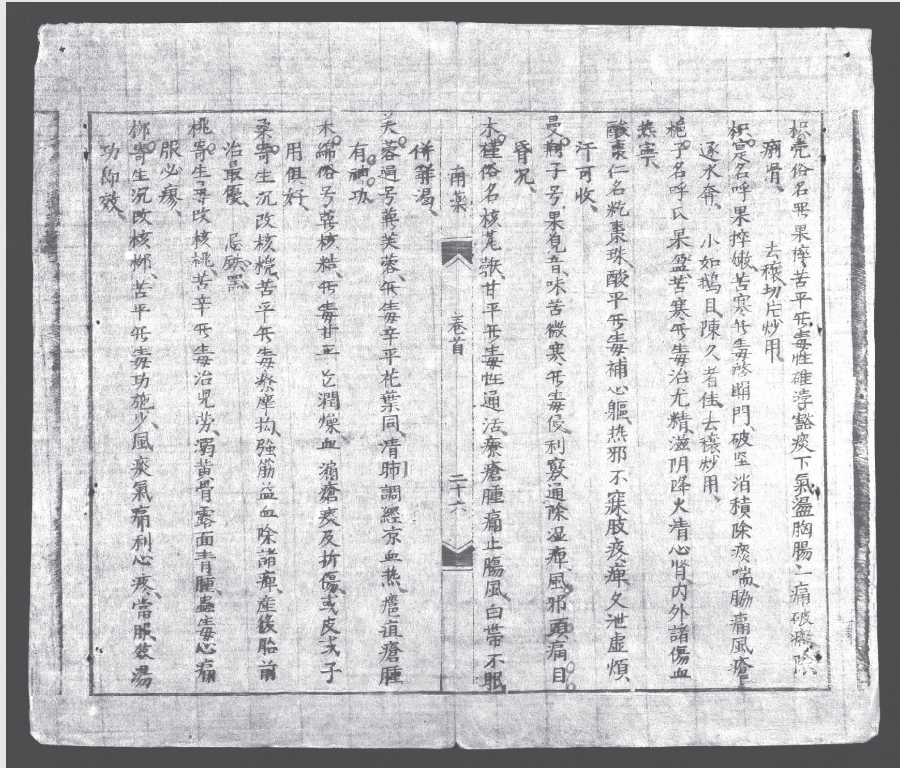 枳壳俗名呼果捽苦平旡毒性雄浡豁痰下氣盪胸腸二痛破癥除
痹骨 去穰切片炒用
枳寔名呼果捽嫩苦寒旡毒關門破坚消積除痰喘脇痛風瘡
逐水奔 小如鵝目陳久者佳去穰炒用
梔子名呼果盈苦寒旡毒治尤精滋阴降火清心腎内外諸傷血
热寧
酸棗仁名籺棗珠酸平旡毒補心軀热邪不寐肢疼痺久泄虚煩
汗可收
曼荆子号果覓音味苦微寒旡毒侵利竅通除湿痺風邪頭痛目
昏况
木槿俗名核花甘平旡毒性通活療瘡腫痛止腸風白帶不眠
併解渴
南藥 卷首 二十六
芙蓉通号蕐芙蓉旡毒辛平花葉同清肺調經凉血热瘡疽瘡腫
有神功
木綿俗号蕐核旡毒甘平潤燥血痛瘡痰及折傷或皮或子
用俱好
桑寄生沉改核橷苦平旡毒療摩拘强筋益血除諸痺產後胎前
治最優 忌硃黑
桃寄生号改核桃苦辛旡毒治児劳溺黄骨露面青腫蟲毒心痛
服必瘳
柳寄生沉改核柳苦平旡毒功施少風痰氣痛利心疼當服皮湯
功即效